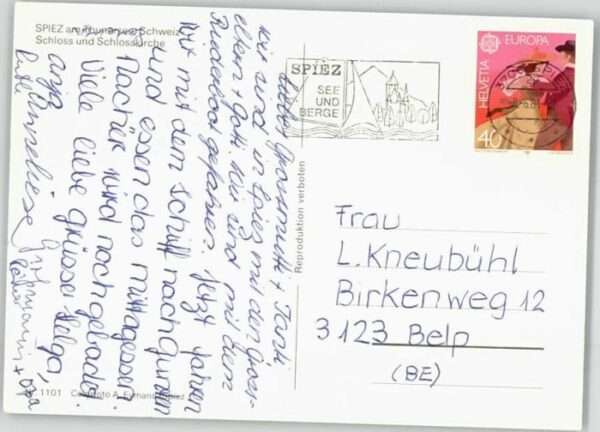 SPIEZ am Thunersee, Schweiz
Schloss und Schlosskirche
Liebes Grossmutti + Tanti
wir sind in Spiez mit den Gross-
eltern + Gotti. Wir sind mit dem
Ruderboot gefahren. Jetzt fahren
wir mit dem Schiff nach Gunten
und essen das Mittagessen.
Nachher wird noch gebadet.
Viele liebe Grüsse Helga,
Anja
Anneliese
Grossmammi + Opa
1101
SPIEZ
SEE
UND
BERGE
Reproduktion verboten
EUROPA
HELVETIA
40
3700 SPIEZ
Frau
L. Kneubühl
Birkenweg 12
3123 Belp
(BE)